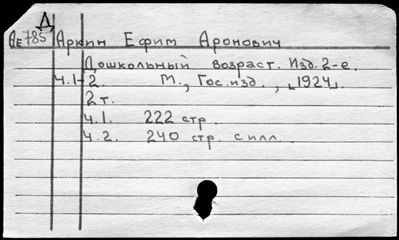 Д
Ае785 Аркин Ефим Аронович
Дошкольный возраст. Изд. 2-е.
Ч.1-2. М., Гос.изд., [1924].
2 т.
Ч.1. 222 стр.
Ч.2. 240 стр. с илл.